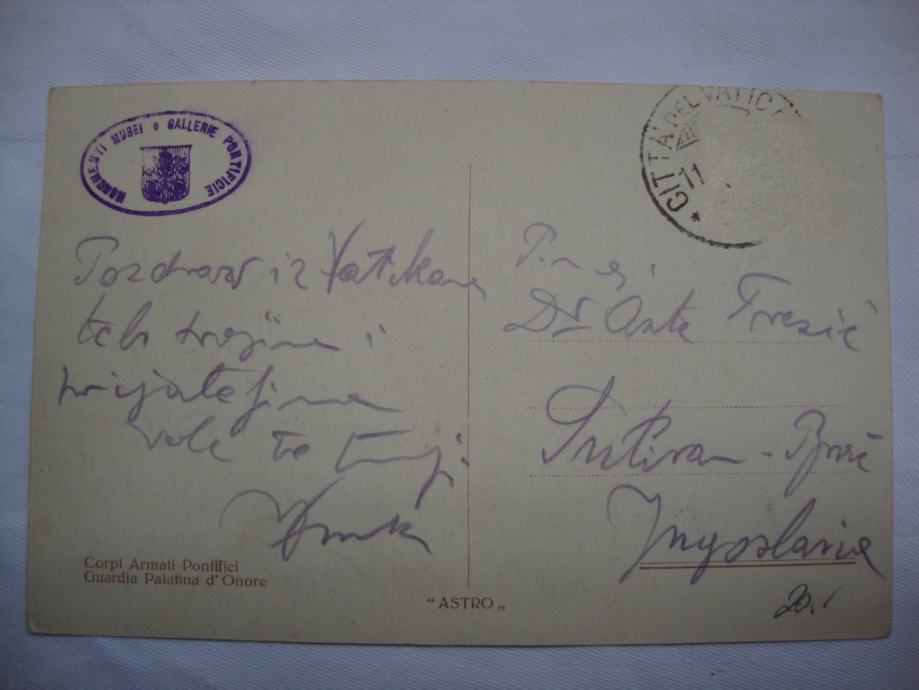 MONUMENTI MUSEI e GALLERIE PONTIFICIE
CITTA' DEL VATICA
11
Pozdrav iz Vatikana
tebi tvojima i
prijateljima
voli te tvoj
Dr Ante Trezić
Sutivan - Brač
Jugoslavia
Corpi Armati Pontifici
Guardia Palatina d'Onore
"ASTRO„
20.